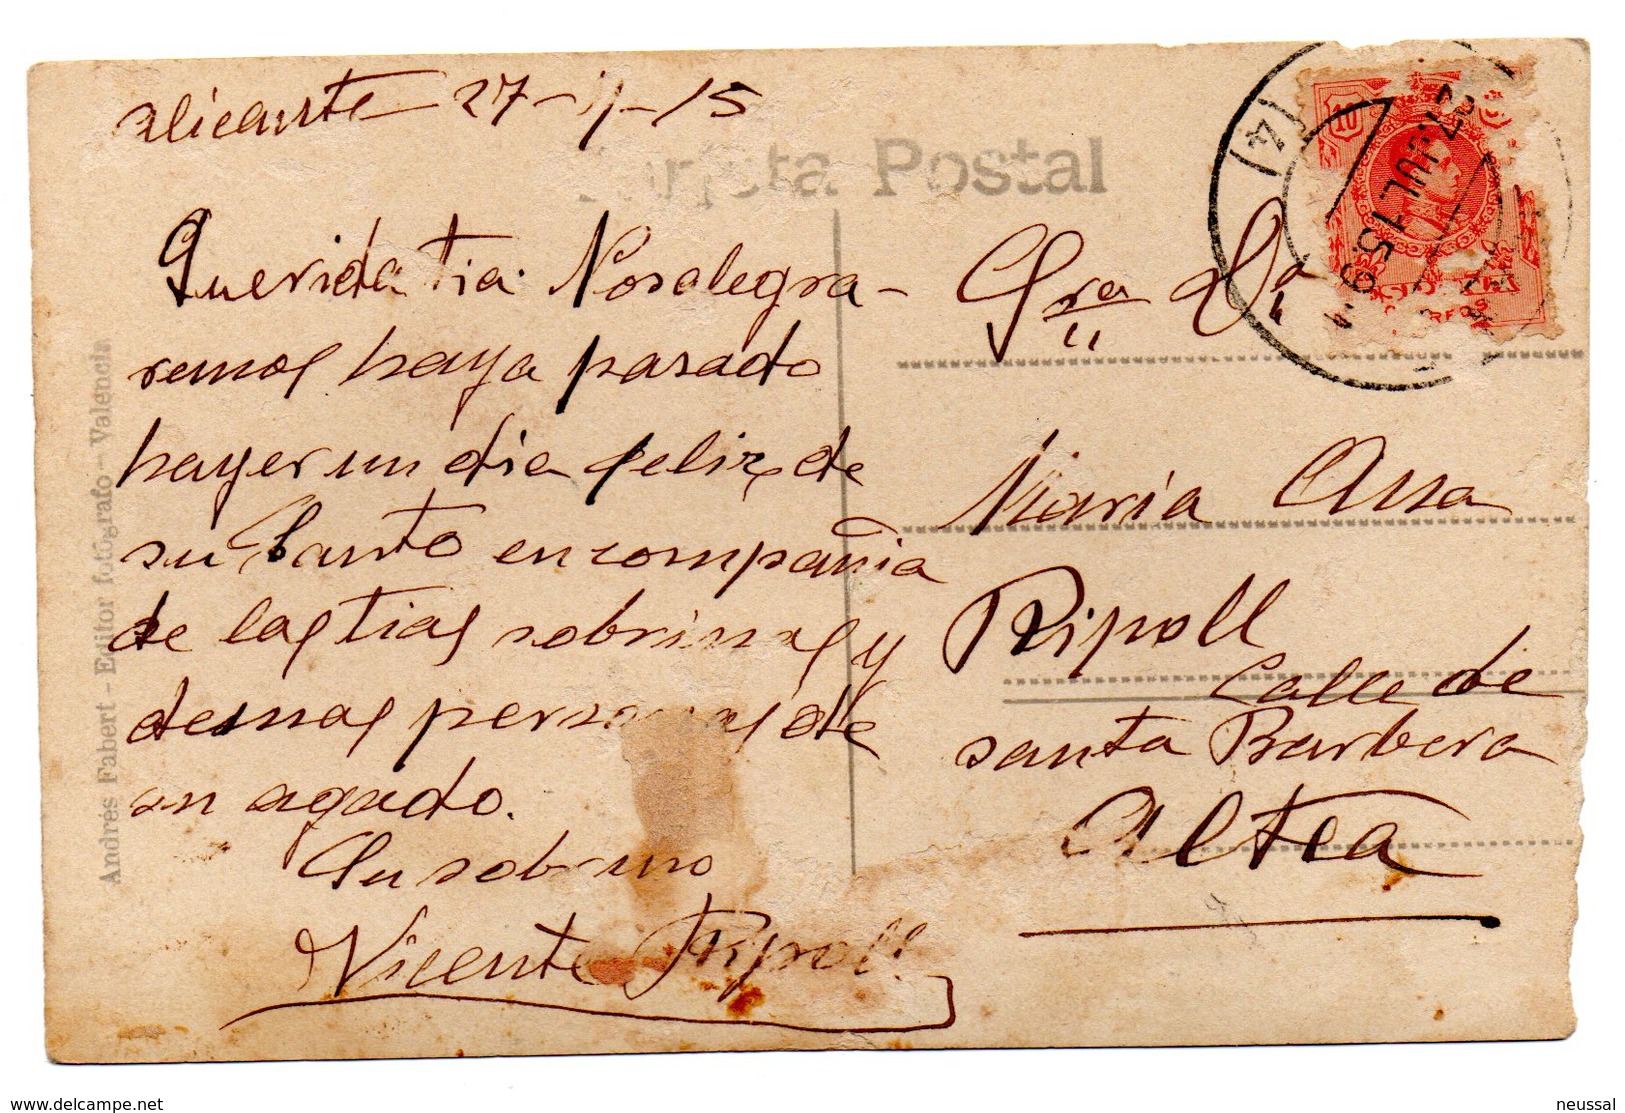 Alicante 27-7-15
Tarjeta Postal
Querida tia: Nos alegra-
remos haya pasado
hayer un dia feliz de
su Santo en compañia
de las tias sobrinas y
demas personas de
su agrado.
Su sobrino
Vicente Ripoll
Sra Dª
Maria Ana
Ripoll
Calle de
santa Barbera
Altea
10
CORREOS
27 JUL 15
Andrés Fabert - Editor fotógrafo - Valencia
www.delcampe.net
neussal